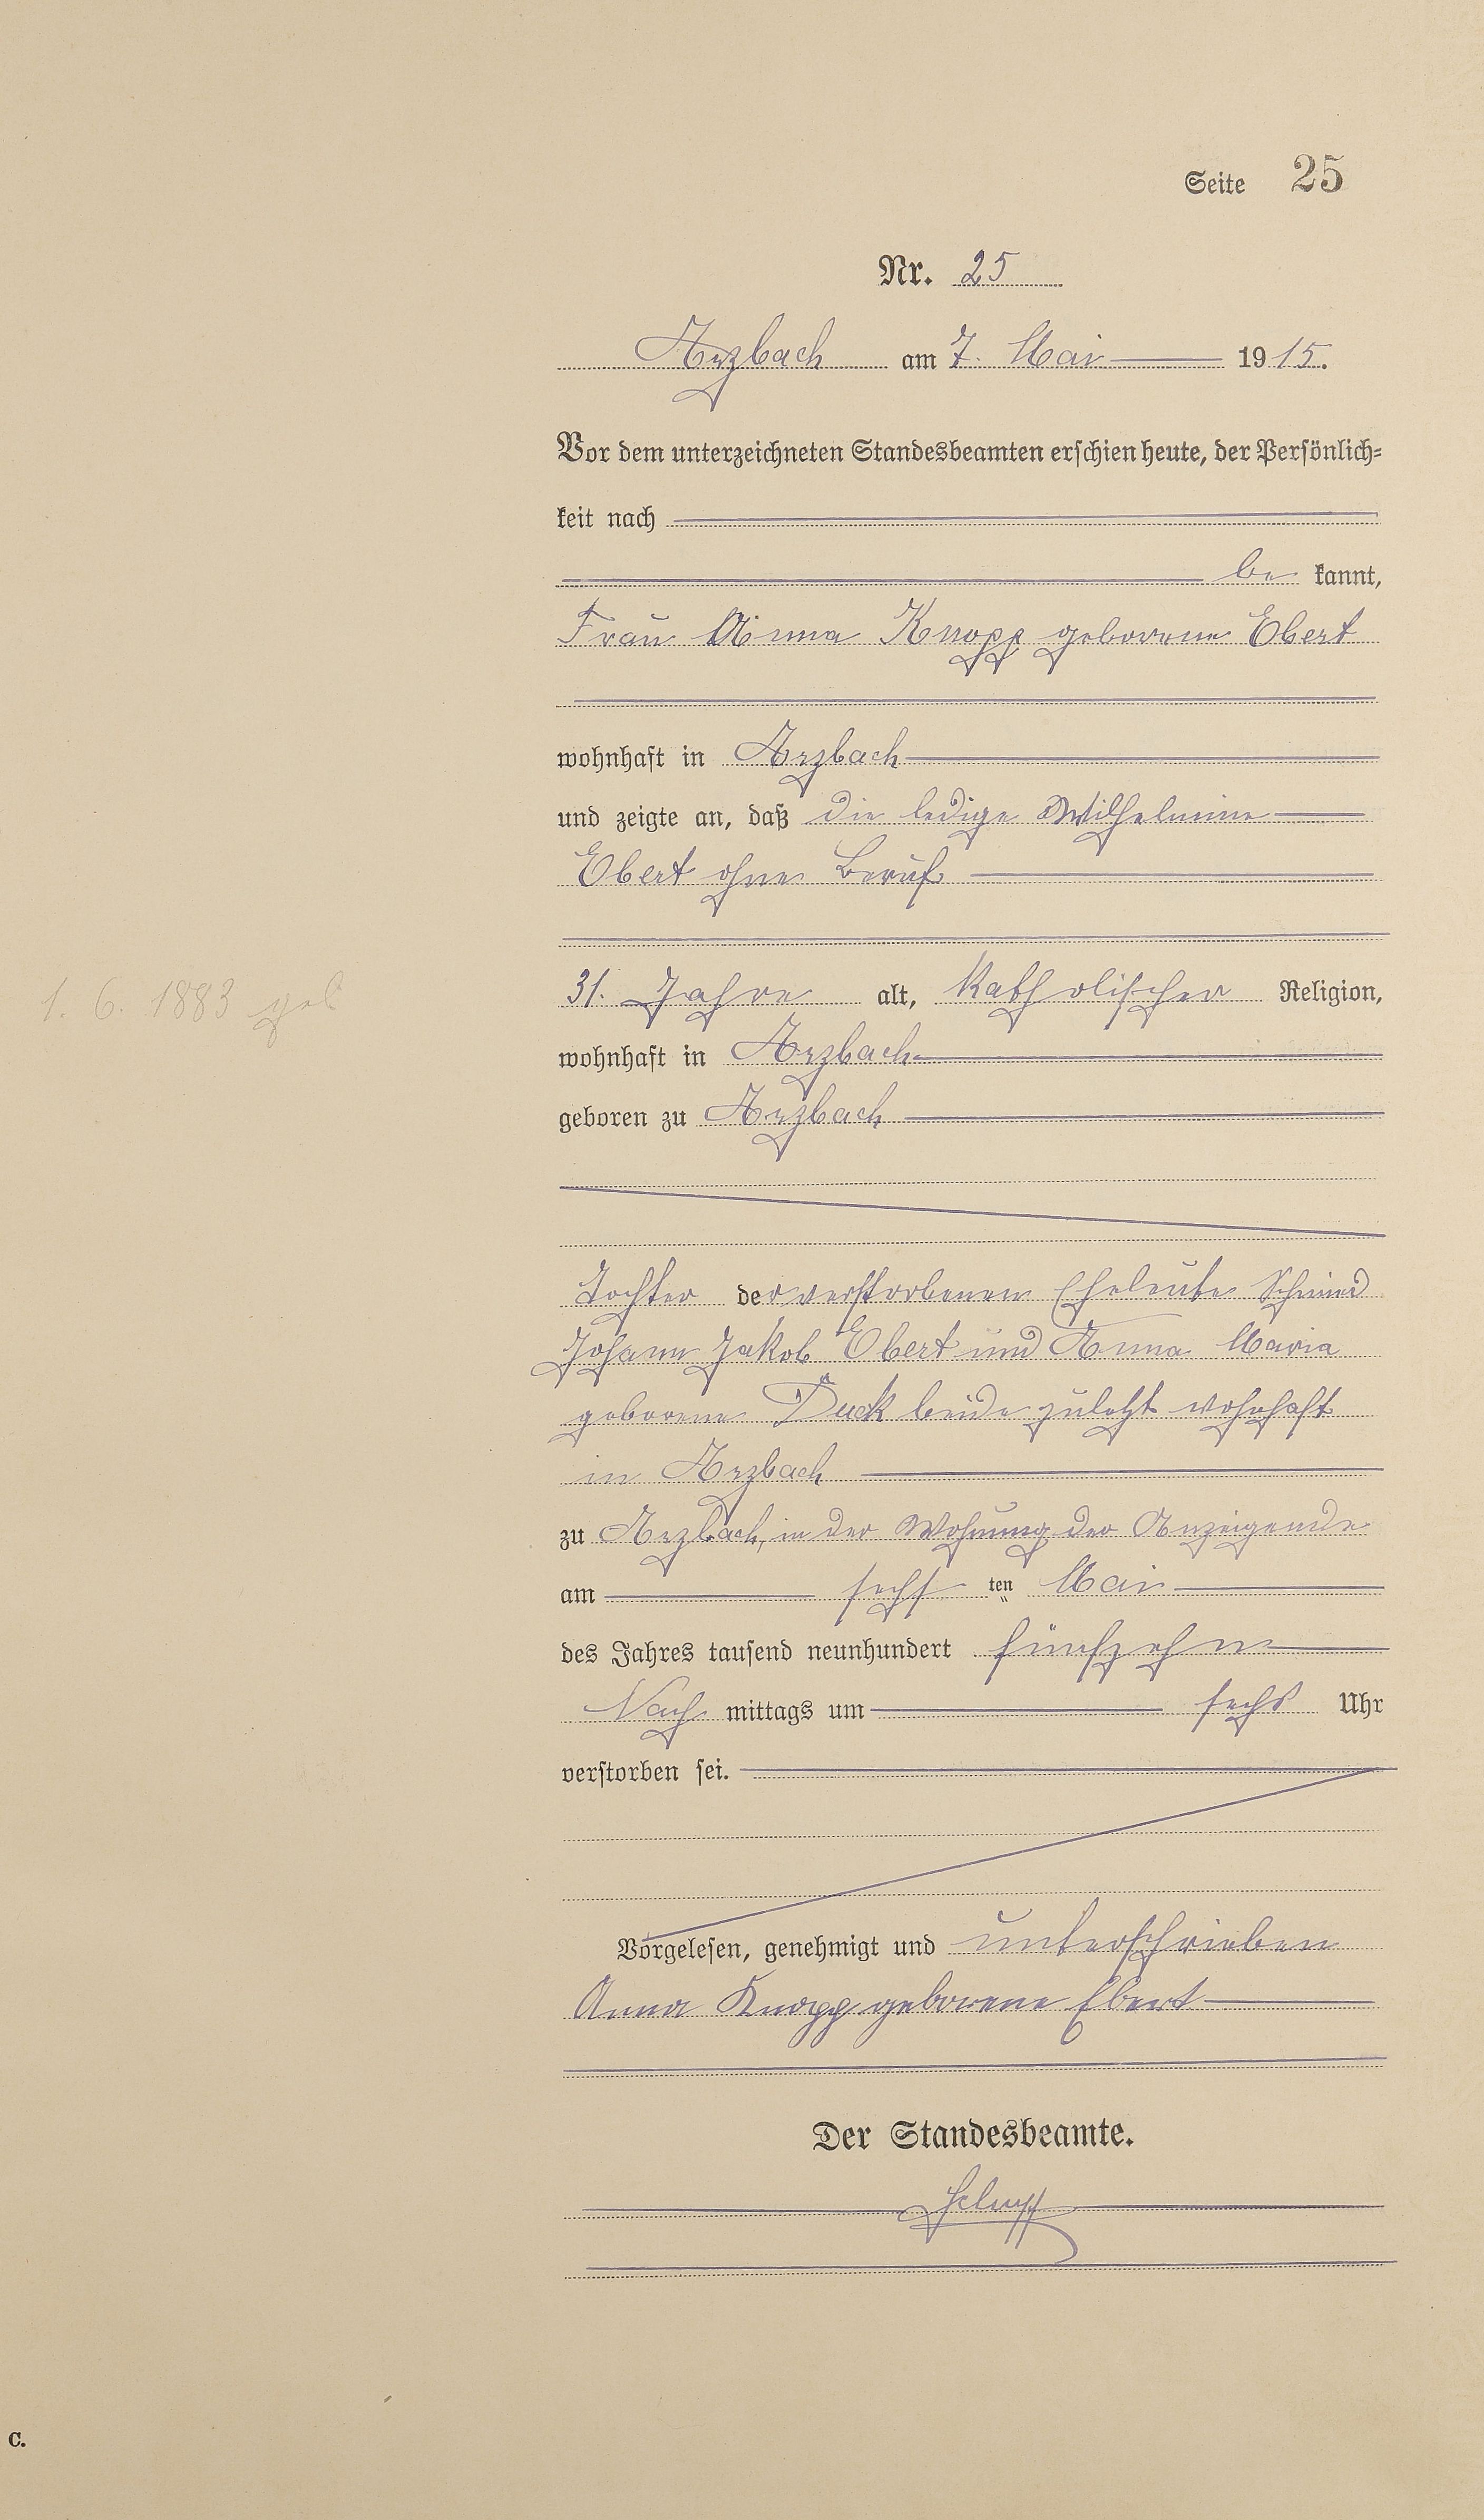 Seite 25
Nr. 25
Arzbach am 7. Mai 1915.
Vor dem unterzeichneten Standesbeamten erschien heute, der Persönlich-
keit nach
be kannt,
Frau Anna Knopp geborene Ebert
wohnhaft in Arzbach
und zeigte an, daß die ledige Wilhelmine
Ebert ohne Beruf
1. 6. 1883 geb
31. Jahre alt, katholischer Religion,
wohnhaft in Arzbach
geboren zu Arzbach
Tochter der verstorbenen Eheleute Schmied
Johann Jakob Ebert und Anna Maria
geborene Duck beide zuletzt wohnhaft
in Arzbach
zu Arzbach, in der Wohnung der Anzeigende
am sechsten Mai
des Jahres tausend neunhundert fünfzehn
Nach mittags um sechs Uhr
verstorben sei.
Vorgelesen, genehmigt und unterschrieben
Anna Knopp geborene Ebert
Der Standesbeamte.
C.